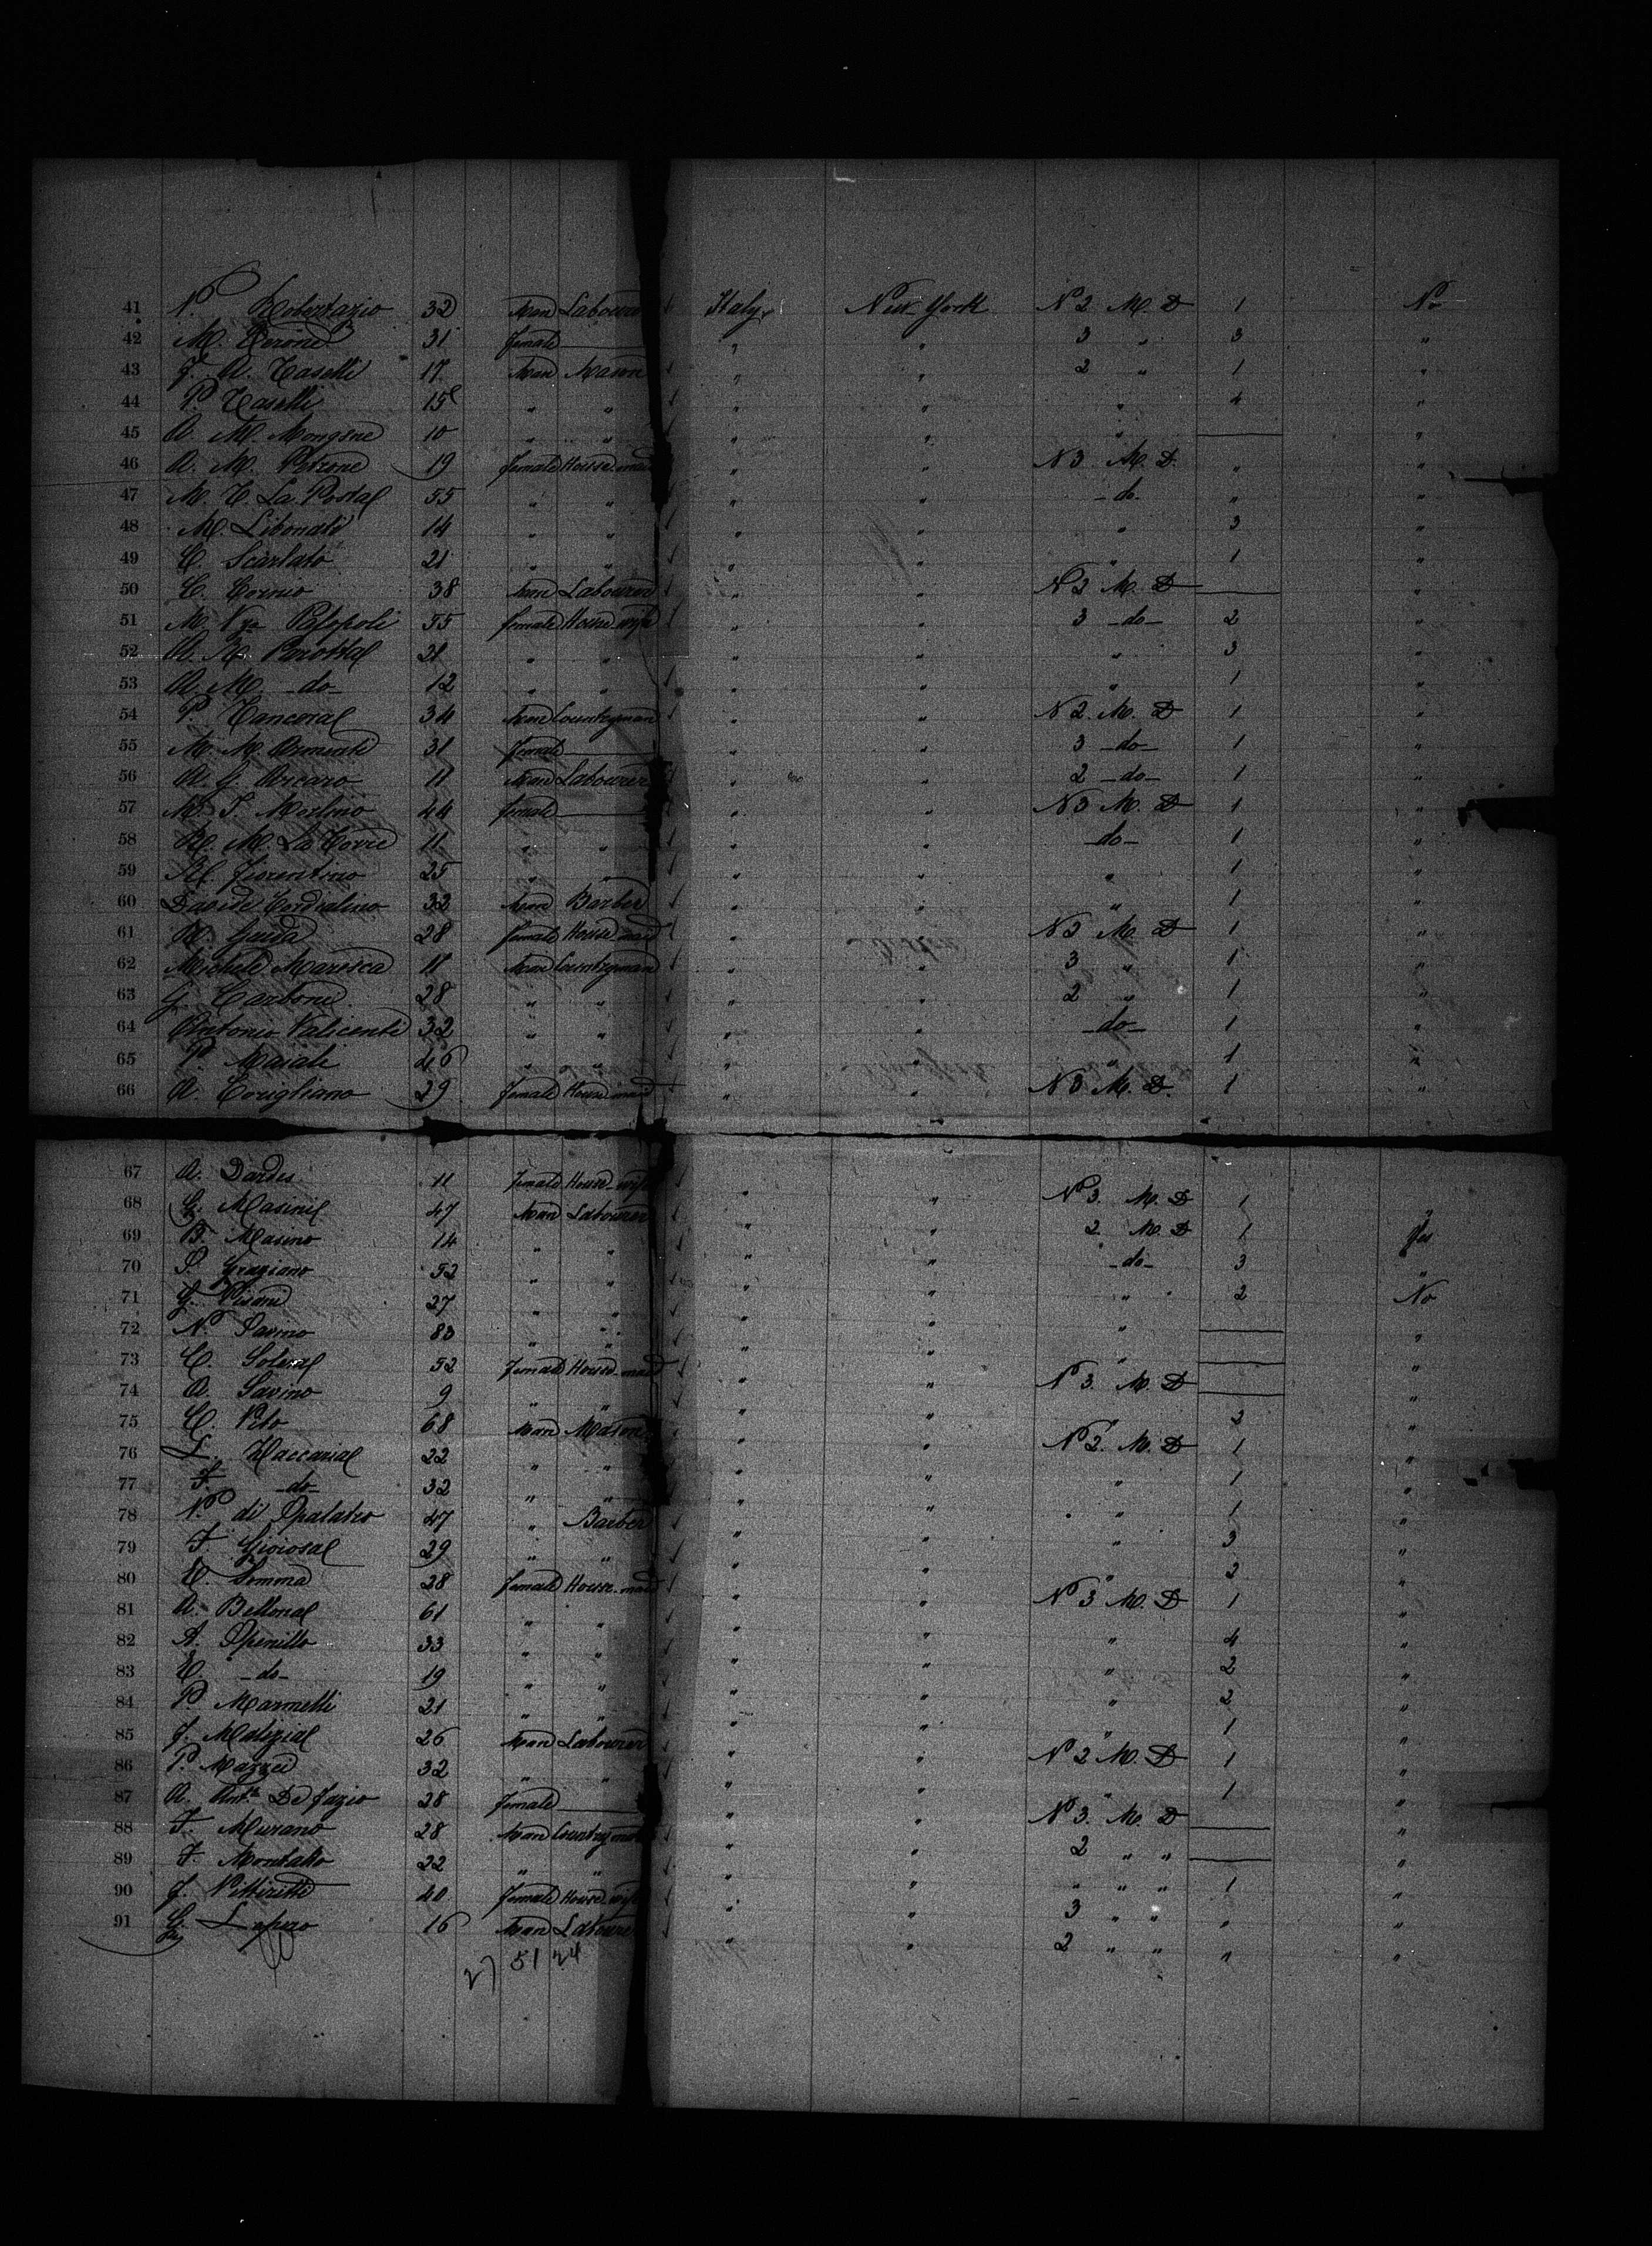 41 N. Robertazio 32 Man Labourer Italy New York N 2 M. D 1 No
42 M. Perone 31 female " " 3 " 3 "
43 F. A. Caselli 17 Man Mason " " 2 " 1 "
44 P. Caselli 15 " " " " " 4 "
45 A. M. Mongone 10 " " " " " "
46 A. M. Petrone 19 female House maid " " N 3 M. D. " "
47 M. C. La Posta 55 " " " " -do- " "
48 M. Libonati 14 " " " " " 3 "
49 C. Scarlato 21 " " " " " 1 "
50 C. Cornio 38 Man Labourer " " N 2 M. D "
51 M. 55 female House-wife " " 3 -do- 2 "
52 21 " " " " " 3 "
53 A. M -do- 12 " " " " " 1 "
54 P. 34 Man Countryman " " N 2. M. D 1 "
55 M. M. 31 female " " 3 -do- 1 "
56 A. G. Arcaro 11 Man Labourer " " 2 -do- 1 "
57 M. T. Merlino 44 female " " N 3 M. D 1 "
58 M. La Torre 11 " " " " -do- 1 "
59 Fiorentino 25 " " " " " 1 "
60 Davide Cordialino 32 Man Barber " " " 1 "
61 Guida 28 female House maid " " M. D 1 "
62 Michele Maresca 11 Man Countryman " " 3 " 1 "
63 G. Carbone 28 " " " " 2 " 1 "
64 Antonio Valicenti 32 " " " " -do- 1 "
65 P. Maiale 46 " " " " " 1 "
66 A. Corigliano 29 female House maid " " N 3 M. D. 1 "
67 A. Dardes 11 female House-wife " " N 3. M. D 1 "
68 G. Masini 47 Man Labourer " " 2 M. D 1 Yes
69 B. Masino 14 " " " " -do- 3 "
70 P. Graziano 52 " " " " " 2 No
71 G. Pisani 27 " " " " " "
72 N. Savino 83 " " " " " "
73 C. 52 female House-maid " " N 3. M. D "
74 A. Savino 9 " " " " " 2 "
75 C. Vito 68 Man Mason " " N 2. M. D 1 "
76 L. Zaccaria 22 " " " " " 1 "
77 F. -do- 32 " " " " " 1 "
78 N. di Spalatro 47 " Barber " " " 3 "
79 F. Gioiosa 29 " " " " " 2 "
80 C. Somma 28 female House-maid " " N 3 M. D 1 "
81 A. Bellona 61 " " " " " 4 "
82 A. Spinillo 33 " " " " " 2 "
83 C. -do- 19 " " " " " 2 "
84 P. Marmelli 21 " " " " " 1 "
85 F. Malizia 26 Man Labourer " " N 2 M. D 1 "
86 P. Mazzei 32 " " " " " 1 "
87 A. De Fazio 28 female " " N 3. M. D "
88 F. Murano 28 Man Countryman " " 2 " " "
89 F. Montalto 22 " " " " " " " 1 "
90 F. 40 female House-wife " " 3 " " " "
91 G. 16 Man Labourer " " 2 " " " "
27 51 24